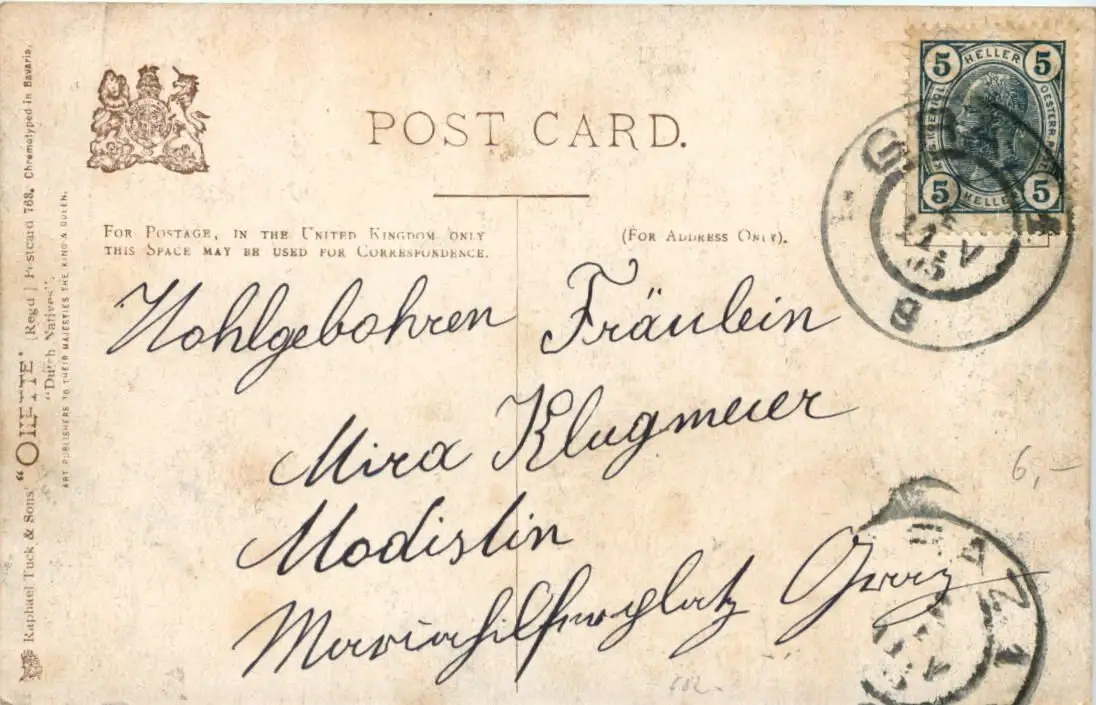 POST CARD.
FOR POSTAGE, IN THE UNITED KINGDOM ONLY
THIS SPACE MAY BE USED FOR CORRESPONDENCE.
(FOR ADDRESS ONLY).
Raphael Tuck & Sons' "OILETTE" [Regd.] Postcard 768. Chromotyped in Bavaria.
"Dutch Natives".
ART PUBLISHERS TO THEIR MAJESTIES THE KING & QUEEN.
5 HELLER 5
5 HELLER 5
Wohlgebohren Fräulein
Mira Klugmeier
Modistin
Mariahilferplatz Graz
6,-